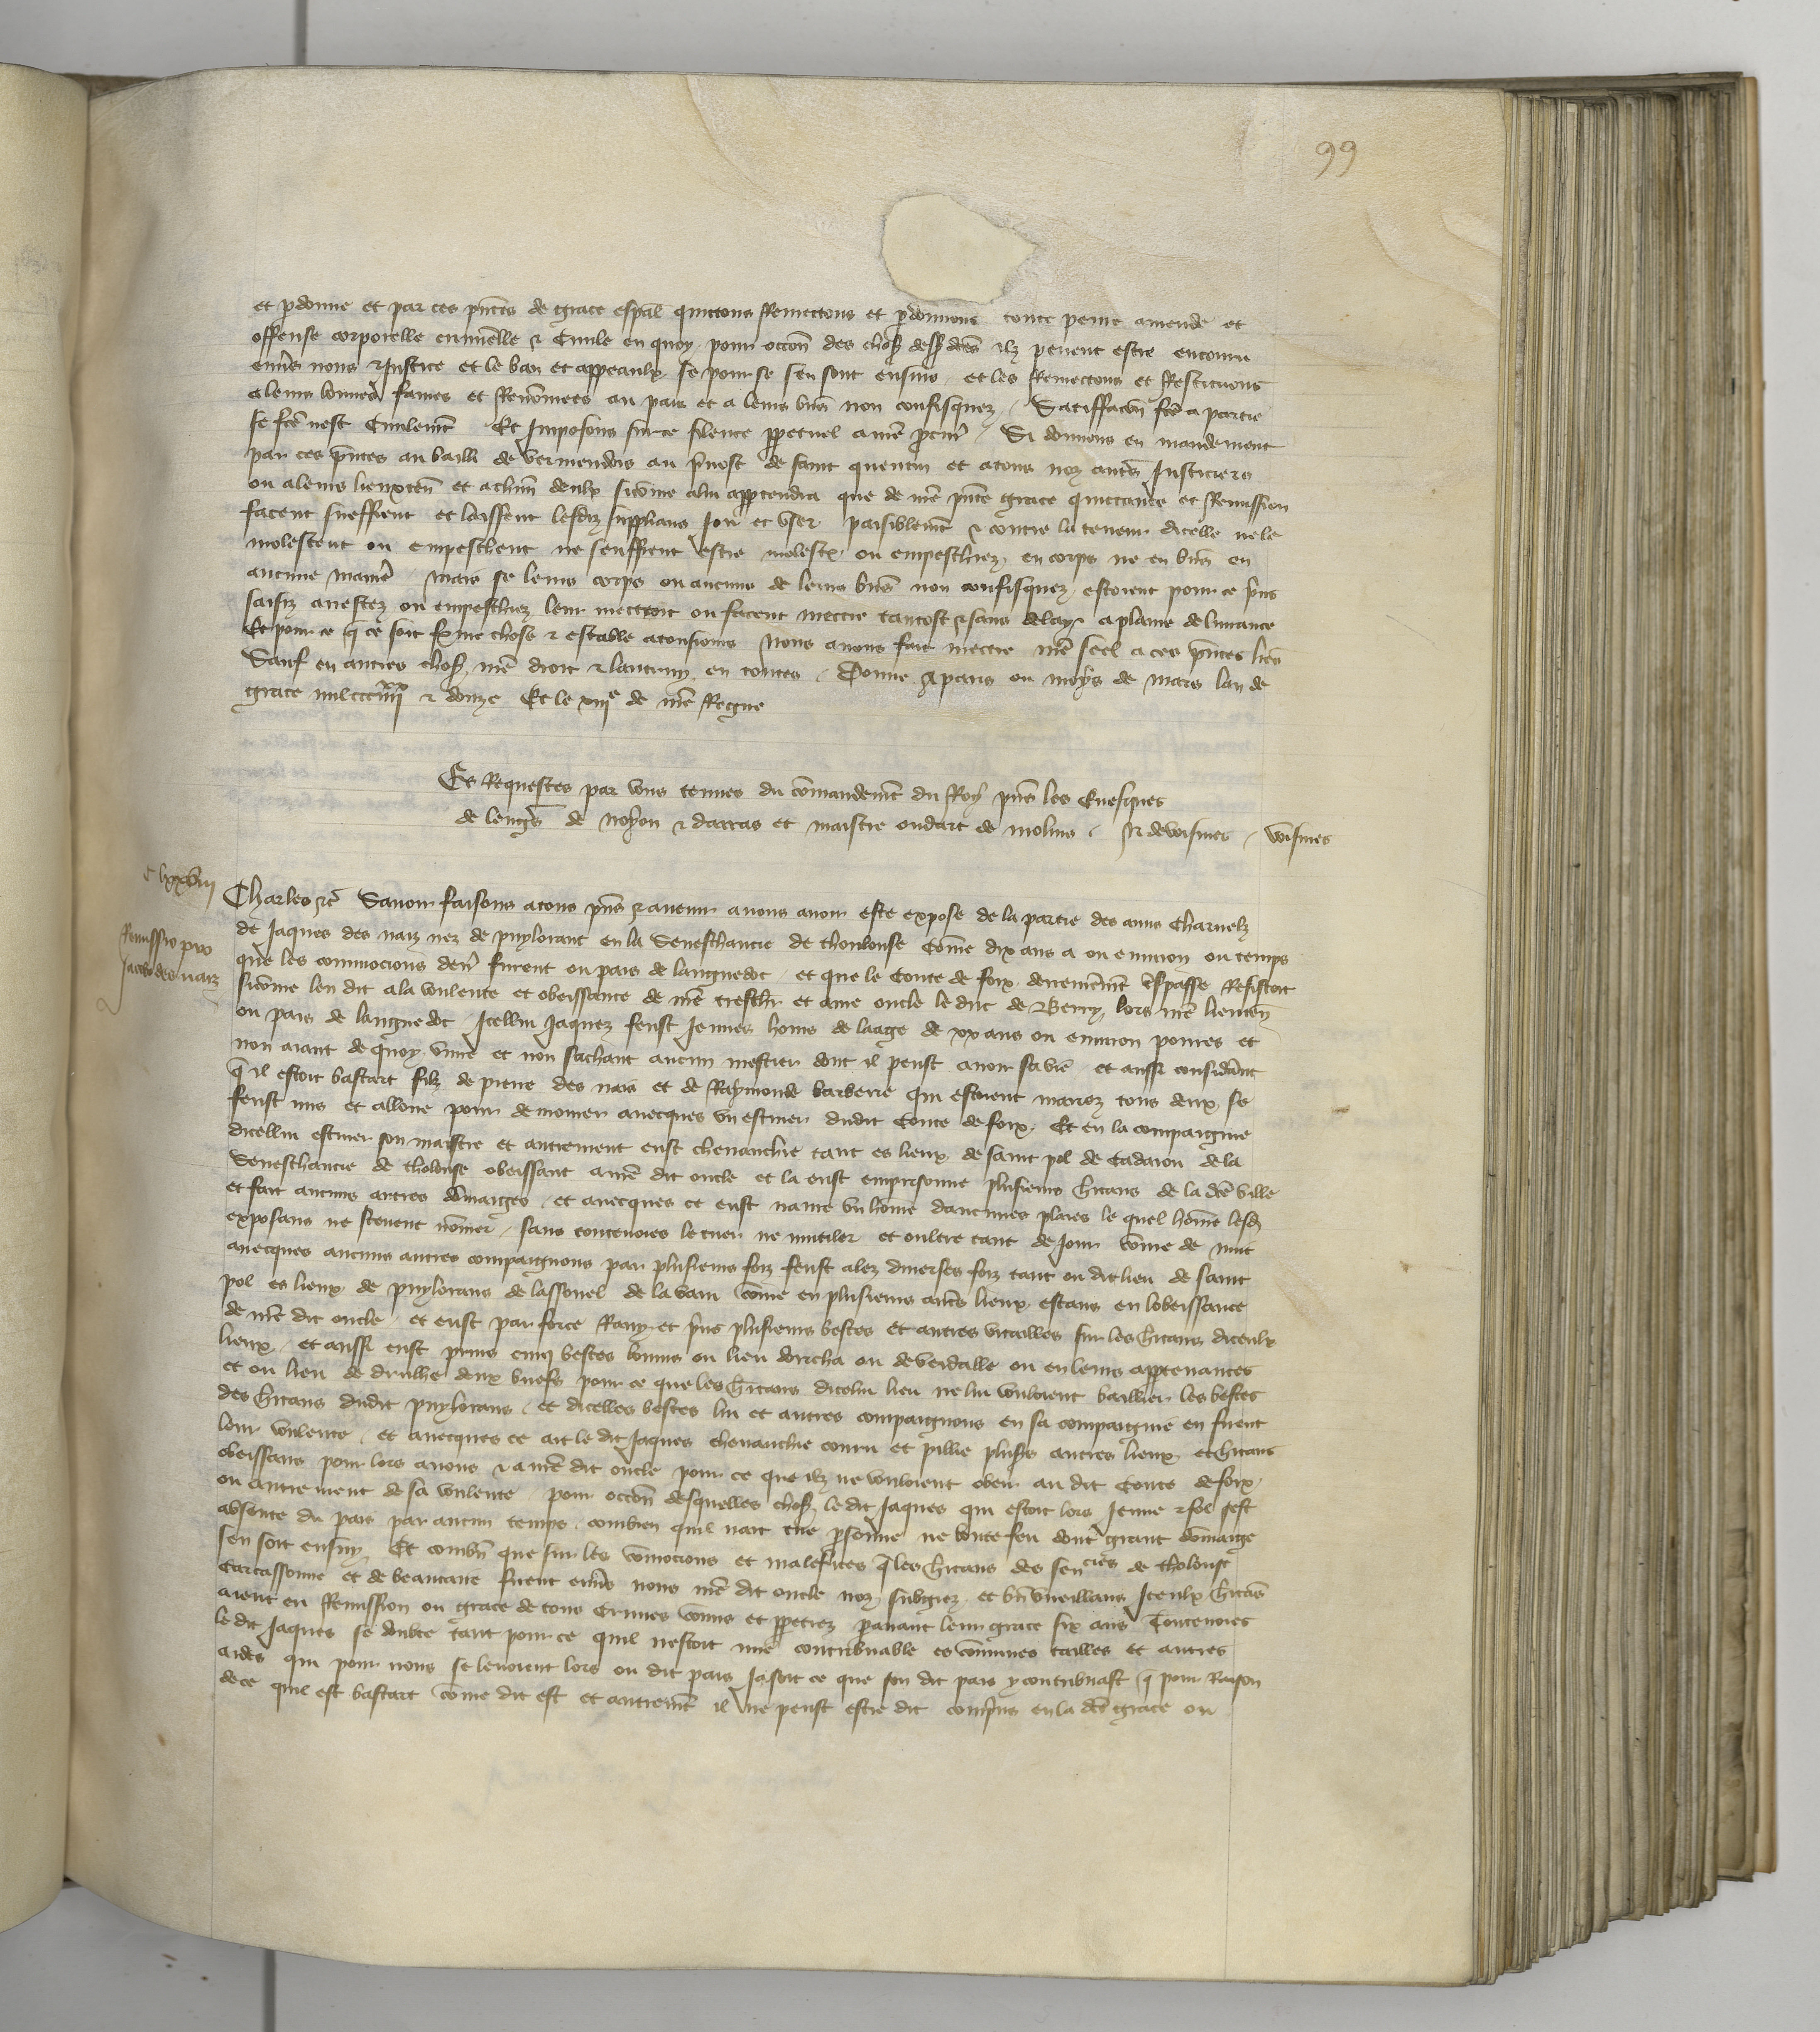 99
et pdonne et par ces pntes de grace espal quictons Remectons et pdonnons toute peine amende et
offense corporelle criminelle & Civile en quoy pour occon des choses dessus dces ilz peuent estre encouru
envers nous & Justice et le ban et appeaulx se pour ce sen sont ensuiz et les Remectons et Restituons
a leurs bonnes fames et Renomees au pais et a leurs biens non confisquez / Satiffacon fte a partie
se fte nest Civilemt Et Imposons sur ce silence ppetuel a nre pcur / Si donnons en mandement
par ces pntes au bailli de vermendois au pvost de saint quentin et a tous noz autres Justiciers
ou a leurs lieuxten et a chun deulx sicome a lui apptendra que de nre pnte grace quictance et Remission
facent sueffrent et laissent lesdiz supplians Joir et user paisiblemt & contre la teneur dicelle ne les
molestent ou empeschent ne seuffrent estre molestez ou empeschiez en corps ne en biens en
aucune maniere mais se leurs corps ou aucuns de leurs biens non confisquez estoient pour ce prins
saisiz arrestez ou empeschiez leur mectent ou facent mectre tantost & sans delay a plaine delivrance
Et pour ce q ce soit ferme chose & estable a tousjours Nous avons fait mectre nre seel a ces pntes lres
Sauf en autres choses nre droit & lautruy en toutes / Donne a paris ou moys de mars lan de
grace mil ccc iiiixx & douze Et le xiiie de nre Regne
Es Requestes par vous tenues du comandemt du Roy pns les Evesques
de lengres de noyon & darras et maistre oudart de molins / N de voismes / voismes
C lxxviii
Remissio pro
Jacobo des naiz
Charles &c Savoir faisons a tous pns & avenir a nous avoir este expose de la partie des amis Charnelz
de Jaques des naiz nez de puylorant en la Seneschaucie de thoulouse Come dix ans a ou environ ou temps
que les commocions derr furent ou pais de languedoc / et que le Conte de foix derrenieremt trespasse Resistoit
sicome len dit a la voulente et obeissance de nre treschr et ame oncle le duc de Berry lors nre lieuten
ou pais de languedoc Icellui Jaquez feust Jeunes homs de laage de xx ans ou environ povres et
non aiant de quoy vivre et non sachant aucun mestier dont il peust avoir sa vie et aussi considerant
q il estoit bastart filz de pierre des nais et de Raymonde barberie qui estoient mariez tous deux se
feust mis et alloue pour demourer avecques un escuier dudit Conte de foix Et en la compaignie
dicellui escuier son maistre et autrement eust chevauchie tant es lieux de saint pol de Cadaiou de la
Seneschaucie de tholouse obeissant a nre dit oncle et la eust emprisonne plusieurs hitans de la dce ville
et fait aucuns autres domaiges / et avecques ce eust navre un home daucunes plaies le quel home lesd
exposans ne scevent nomer / sans toutevoies le tuer ne mutiler et oultre tant de Jour come de nuit
avecques aucuns autres compaignons par plusieurs foiz feust alez diverses foiz tant ou dit lieu de saint
pol es lieux de puylorans de lassonel de la vaur come en plusieurs autres lieux estans en lobeissance
de nre dit oncle / et eust par force Ravy et prins plusieurs bestes et autres vitailles sur les hitans diceulx
lieux / et aussi eust prins cinq bestes bovins ou lieu dorcha ou de verdalle ou en leurs apptenances
et ou lieu de drulhe deux buefs pour ce que les hitans dicelui lieu ne lui vouloient baillier les bestes
des hitans dudit puylorans / et dicelles bestes lui et autres compaignons en sa compaignie en firent
leur voulente / et avecques ce ait le dit Jaques chevauchie couru et pillie plusrs autres lieux et hitans
obeissans pour lors a nous & a nre dit oncle pour ce que ilz ne vouloient obeir au dit Conte de foix
ou autrement de sa voulente / pour occon desquelles choses le dit Jaques qui estoit lors Jeune & fol sest
absente du pais par aucun temps / combien quil nait tue psonne ne boute feu dont grant domaige
sen soit ensuy / Et combn que sur les comocions et malefices q les hitans des sencies de tholouse
Carcassonne et de beaucaire firent envers nous nre dit oncle noz subgiez et bn vueillans Iceulx hitans
aient eu Remission ou grace de tous Crimes comis et ppetrez paravant leur grace six ans Toutevoies
le dit Jaques se doubte tant pour ce quil nestoit mie contribuable es communes tailles et autres
aides qui pour nous se levoient lors ou dit pais Jasoit ce que son dit pais y contribuast q pour Raison
de ce quil est bastart come dit est et autremt il ne peust estre dit comprins en la dce grace ou